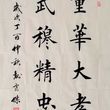 重華大孝
武穆精忠
歲次丁酉仲秋